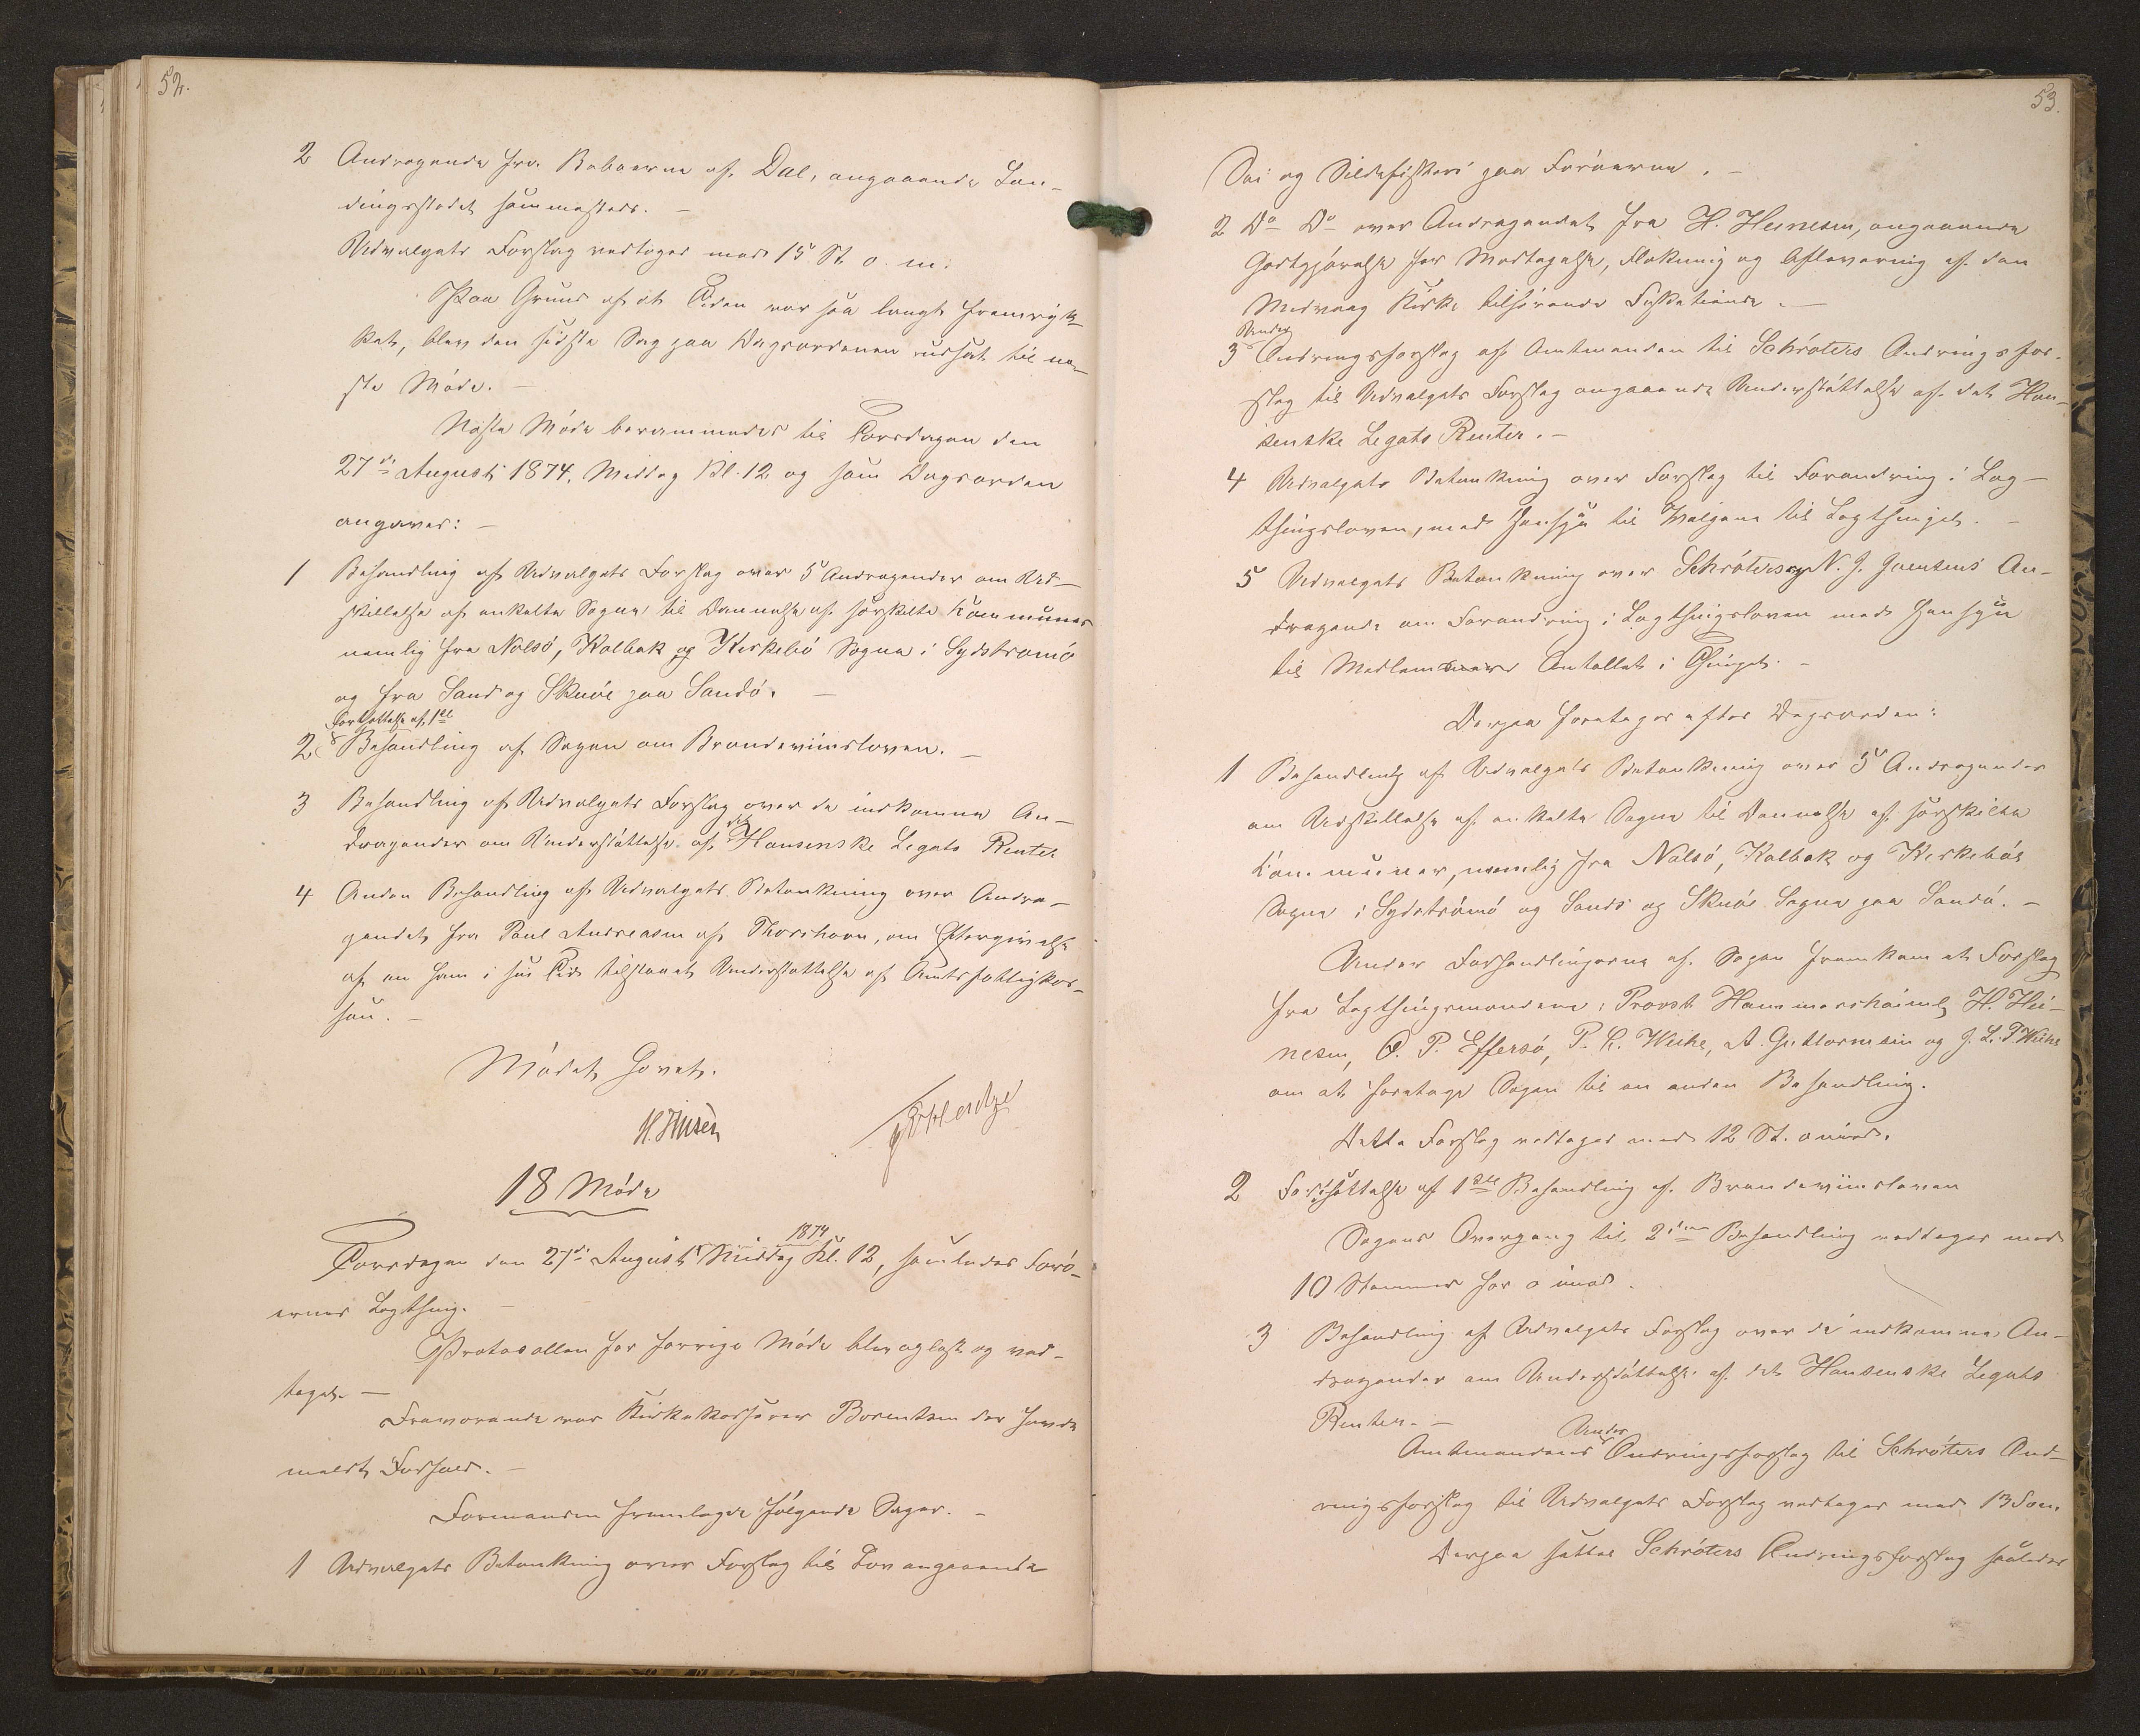 52.
2 Andragende fra Beboerne af Dal, angaaende Lan-
dingsstedet sammesteds. –
Udvalgets Forslag vedtoges med 15 St. o. m.
Paa Grund af at Tiden var saa langt fremryk-
ket, blev den sidste Sag paa Dagsordenen udsat til næ-
ste Møde. –
Næste Møde berammedes til Torsdagen den
27de August 1874, Middag Kl. 12 og som Dagsorden
angaves: –
1 Behandling af Udvalgets Forslag over 5 Andragender om Ud-
skillelse af enkelte Sogne til Dannelse af særskilte Kommuner
nemlig fra Nolsø, Kalbak og Kirkebø Sogne i Sydstrømø
og fra Sand og Skuøe paa Sandø. –
Fortsættelse af 1ste
2 Behandling af Sagen om Brændeviinsloven. –
3 Behandling af Udvalgets Forslag over de indkomne An-
dragender om Understøttelse af det Hansenske Legats Renter
4 Anden Behandling af Udvalgets Betænkning over Andra-
gendet fra Poul Andreasen af Thorshavn, om Eftergivelse
af en ham i sin Tid tilstaaet Understøttelse af Amtsfattigkas-
sen. –
Mødet hævet.
18 Møde
1874
Torsdagen den 27de August Middag Kl. 12, samledes Færø-
ernes Lagthing. –
Protocollen for forrige Møde blev oplæst og ved-
taget. –
Fraværende var Kirkekasserer Berentsen der havde
meldt Forfald. –
Formanden fremlagde følgende Sager. –
1 Udvalgets Betænkning over Forslag til Lov angaaende
53.
Sei og Sildefiskeri paa Færøerne. –
2 Do Do over Andragendet fra H. Heinesen, angaaende
Godtgjørelse for Modtagelse, Flækning og Aflevering af den
Midvaag Kirke tilhørende Fisketiende. –
Under
3 Ændringsforslag af Amtmanden til Schrøters Ændringsfor-
slag til Udvalgets Forslag angaaende Understøttelse af det Han-
senske Legats Renter. –
4 Udvalgets Betænkning over Forslag til Forandring i Lag-
thingsloven, med Hensyn til Valgene til Lagthinget. –
5 Udvalgets Betænkning over Schrøters og N. J. Joensens An-
dragende om Forandring i Lagthingsloven med Hensyn
til Medlemmernes Antallet i Thinget. –
Derpaa foretoges efter Dagsorden:
1 Behandling af Udvalgets Betænkning over 5 Andragender
om Udskillelse af enkelte Sogne til Dannelse af særskilte
Kommuner, nemlig fra Nolsø, Kalbak og Kirkebøs
Sogne i Sydstrømø og Sands og Skuøe Sogne paa Sandø. –
Under Forhandlingerne af Sagen fremkom et Forslag
fra Lagthingsmændene: Provst Hammershaimb, H. Hei-
nesen, O. P. Effersø, P. C. Weihe, A. Guttormsen og J. L. T. Weihe
om at foretage Sagen til en anden Behandling.
Dette Forslag vedtoges med 12 St. o imod.
2 Fortsættelse af 1ste Behandling af Brændeviinsloven
Sagens Overgang til 2den Behandling vedtoges med
10 Stemmer for o imod.
3 Behandling af Udvalgets Forslag over de indkomne An-
dragender om Understøttelse af det Hansenske Legats
Renter. –
Under
Amtmandens Ændringsforslag til Schrøters Ænd-
ringsforslag til Udvalgets Forslag vedtoges med 13 Stem.
Derpaa sattes Schrøters Ændringsforslag saaledes